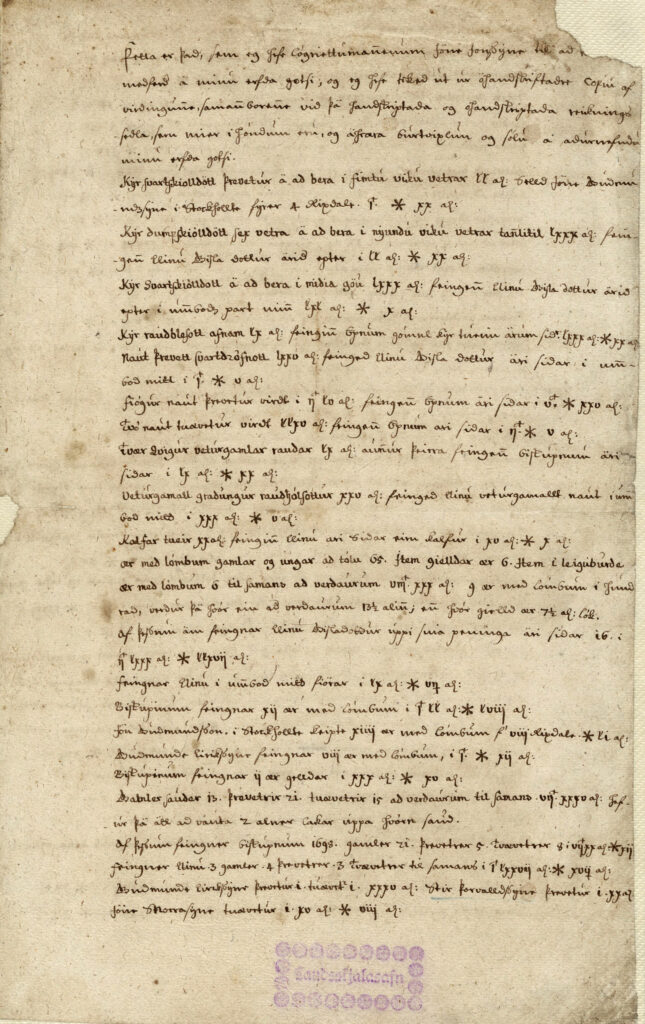 Þetta er þad, sem eg hefe Lögriettumannenum Jone Jonssyne til ad
medferd á minu erfda gotsi, og eg hefe teked ut úr óhandskriftadre Copiu af
virdingunne, samanborenne vid þá handskriptada og óhandskriptada reiknings
sedla, sem mier i hondum eru, og áhræra burtvixlun og solu á adurnefndu
minu erfda gotsi.
Kýr svartskiolldott þrevetur á ad bera i fimtu viku vetrar ll al: Selld Jone Gudmu
ndssyne i Stockhollte fyrer 4 Rixdale. ✻ xx al:
Kýr dumpskiolldott sex vetra á ad bera i nijundu viku vetrar lxxx al: fein-
genn Elinu Gisla dottur árid epter i ll al: ✻ xx al:
Kýr Svartskiolldott á ad bera i midia góu lxxx al: feingenn Elinu Gisla dottur árid
epter i umbods part minn lxl al: ✻ x al:
Kýr raudblesott lx al: feingin gomul Kýr tveim árum sid. lxxx al: ✻ xx al
Naut þrevett lxxv al: feinged Elinu Gisla dottur ári sidar i um-
bod mitt i ✻ v al:
fiogur naut þrevetur virdt i lv al: feingenn ári sidar i ✻ xxv al:
Tvo naut tvævetur virdt llxv al: feingenn ari sidar i ✻ v al:
Tvær qvigur veturgamlar raudar lx al: aunnur þeirra feingenn biskupenum ári
sidar i lx al: ✻ xx al:
Veturgamall gradungur xxv al: feinged Elinu veturgamallt naut i um
bod mitt i xxx al: ✻ v al:
Kalfar tveir xx al: feinginn Elinu ári sidar einn kalfur i xv al: ✻ x al:
ær med lömbum gamlar og ungar ad tölu 65. Item gielldar ær 6. Item i leiguburde
ær med lömbum 6 til samans ad verdaurum xxx al: 9 ær med lömbum i hund
rad, verdur þá hvör ein ad verdaurum 13½ alin; enn hvör gielld ær 7½ al: lök.
Af þessum ám feingnar Elinu Gisladottur uppi sina peninga ári sidar 16. i
lxxx al: ✻ llxvij al:
feingnar Elinu i umbod mitt fiorar i lx al: ✻ vij al:
Biskupinum feingnar xij ær med lömbum i ll al: ✻ lviii al:
Jon Gudmundsson i Stockhollte keipte xiiii ær med lömbum f viii Rixdale. ✻ li al:
Gudmunde Eirikssyne feingnar viii ær med lömbum, i ✻ xij al:
Biskupinum feingnar ij ær gelldar i xxx al: ✻ xv al:
Gamler sauder 13. þrevetrir 21. tvævetrir 15 ad verdaurum til samans xxxv al: hef-
ur þá átt ad vanta 2 alner lakar uppa hvörn saud.
Af þessum feingner biskupnum 1693. gamler 21. þrevetrer 5. Tvævetrer 8 i xx al: ✻ xij
feingner Elinu 3 gamler. 4 þrevetrer. 3 Tvævetrer til samans i lxxvij al: ✻ xvij al:
Gudmunde Eirikssyne þrevetur 1. tvævet 1. xxxv al: þorvalldssyne þrevetur 1. xx al:
Jone Snorrasyne tvævetur 1. xv al: ✻ viii al:
Landsskjalasafn